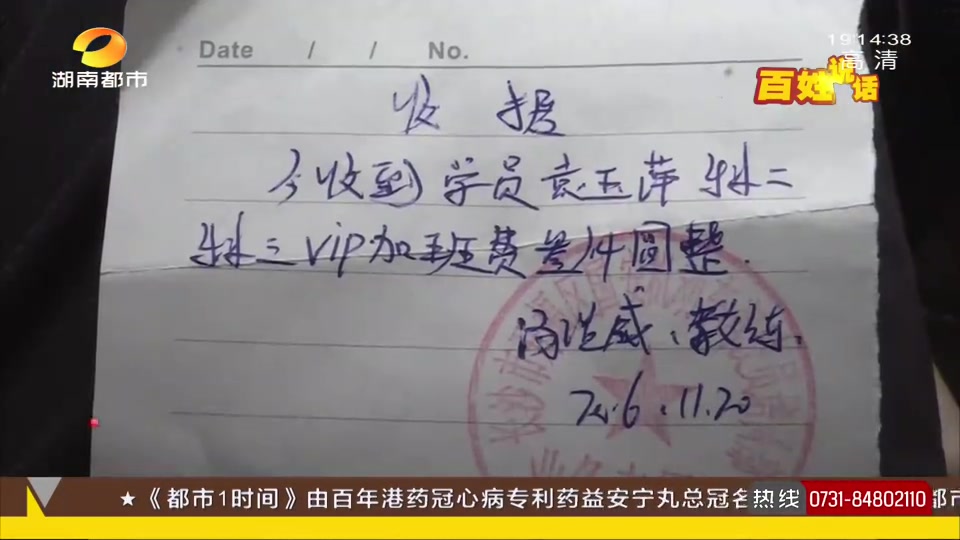 湖南都市
19:14:38
高清
百姓说话
Date / / No.
收 据
今收到学员袁玉萍 科二
科三VIP加班费 圆整.
教练.
2016.11.20
长沙市
★《都市1时间》由百年港药冠心病专利药益安宁丸总冠名
热线 0731-84802110
都市